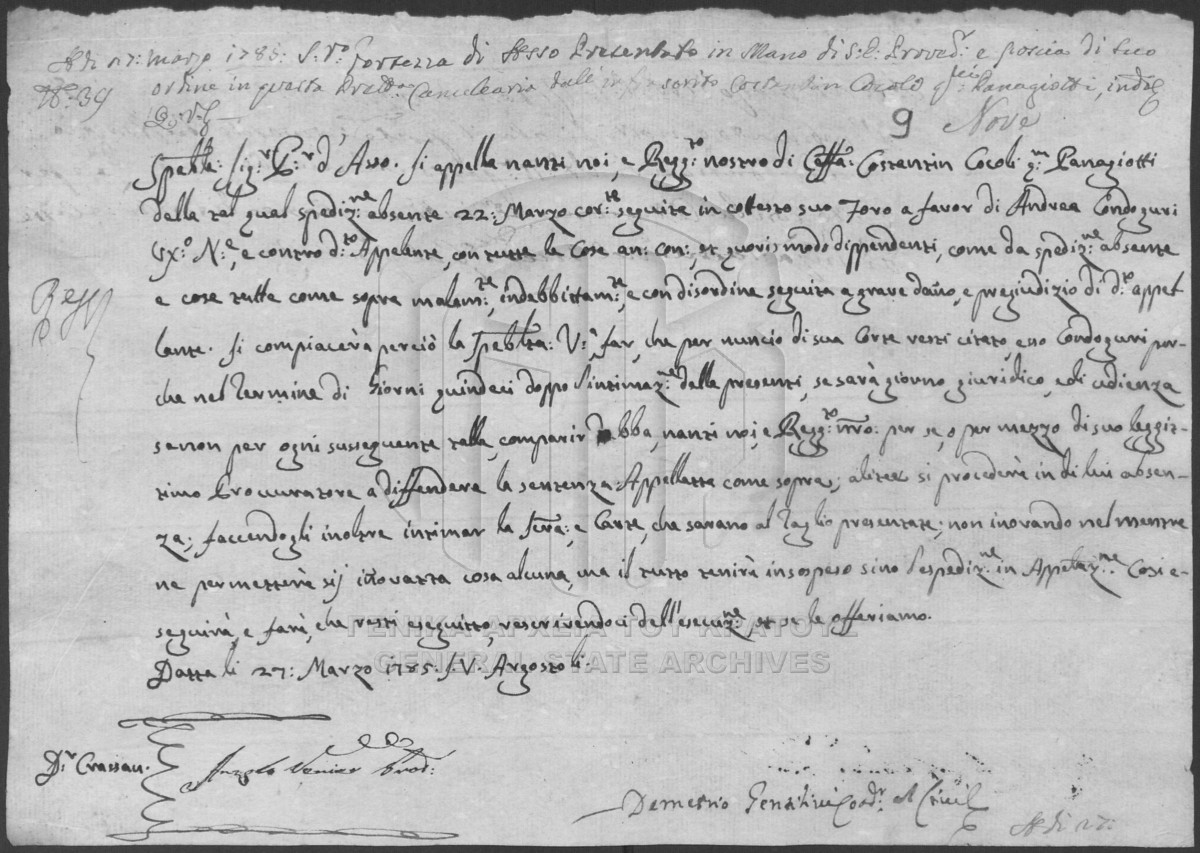 Adi 27: Marzo 1785: S.Vo. Fortezza di Asso Presentato in Mano di S.E. Proved.r e poscia di suo
No. 39 ordine in questa Cancellaria dall' infrascritto Costantin Cocoli Panagiotti,
9 Nove
Spetble: Sig.r P.r d'Asso. Si appella nanti noi, e Regg:to nostro di Ceffa: Costantin Cocoli q:m Panagiotti
dalla tal qual spediz:ne absente 22: Marzo cor:te seguita in cottesto suo Foro a favor di Andrea Condoguri
Ux:o N:e, e contro d:to Appelante, con tutte le Cose an: con:, et quovis modo dippendenti, come da spediz:ne absente
e cose tutte come sopra malam:te, indebbittam:te, e con disordine seguita a grave daño, e pregiudizio di d:to appel
Regg
lante. Si compiacerà perciò la Spetblta: V:a, far, che per nuncio di sua Corte resti citato, esso Condoguri per-
che nel Termine di Giorni quindeci doppo l'intimaz:ne della presenti, se sarà giorno giuridico, e di udienza
senon per ogni sussequente talle, comparir debba, nanti noi, e Regg:to nrõ: per se, o per mezzo di suo leggit-
timo Proccuratore a diffendere la sentenza Appellatta come sopra; aliter si procederà in di lui absen-
za; faccendogli inoltre intimar la e Carte, che sarano al Taglio presentate; non inovando nel mentre
ne permetterà sij inovatta cosa alcuna, ma il tutto tenirà insospeso sino l'espediz:ne in Appelaz:ne. Cosi e-
seguirà, e farà, che resti eseguitto, rescrivendoci dell'esecuz:ne et se le offeriamo.
ΓΕΝΙΚΑ ΑΡΧΕΙΑ ΤΟΥ ΚΡΑΤΟΥΣ
GENERAL STATE ARCHIVES
Datta li 27: Marzo 1785: S.V. Argostoli:
D:r Crassan.
Anzolo Venier Prov:
Demetrio Gentilini Coad:r al Civil
Adi 27: